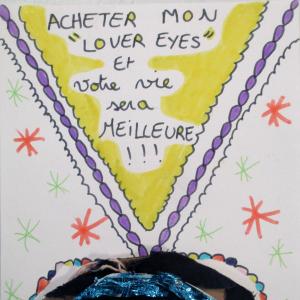 ACHETER MON
"LOVER EYES"
ET
votre vie
sera
MEILLEURE
!!!